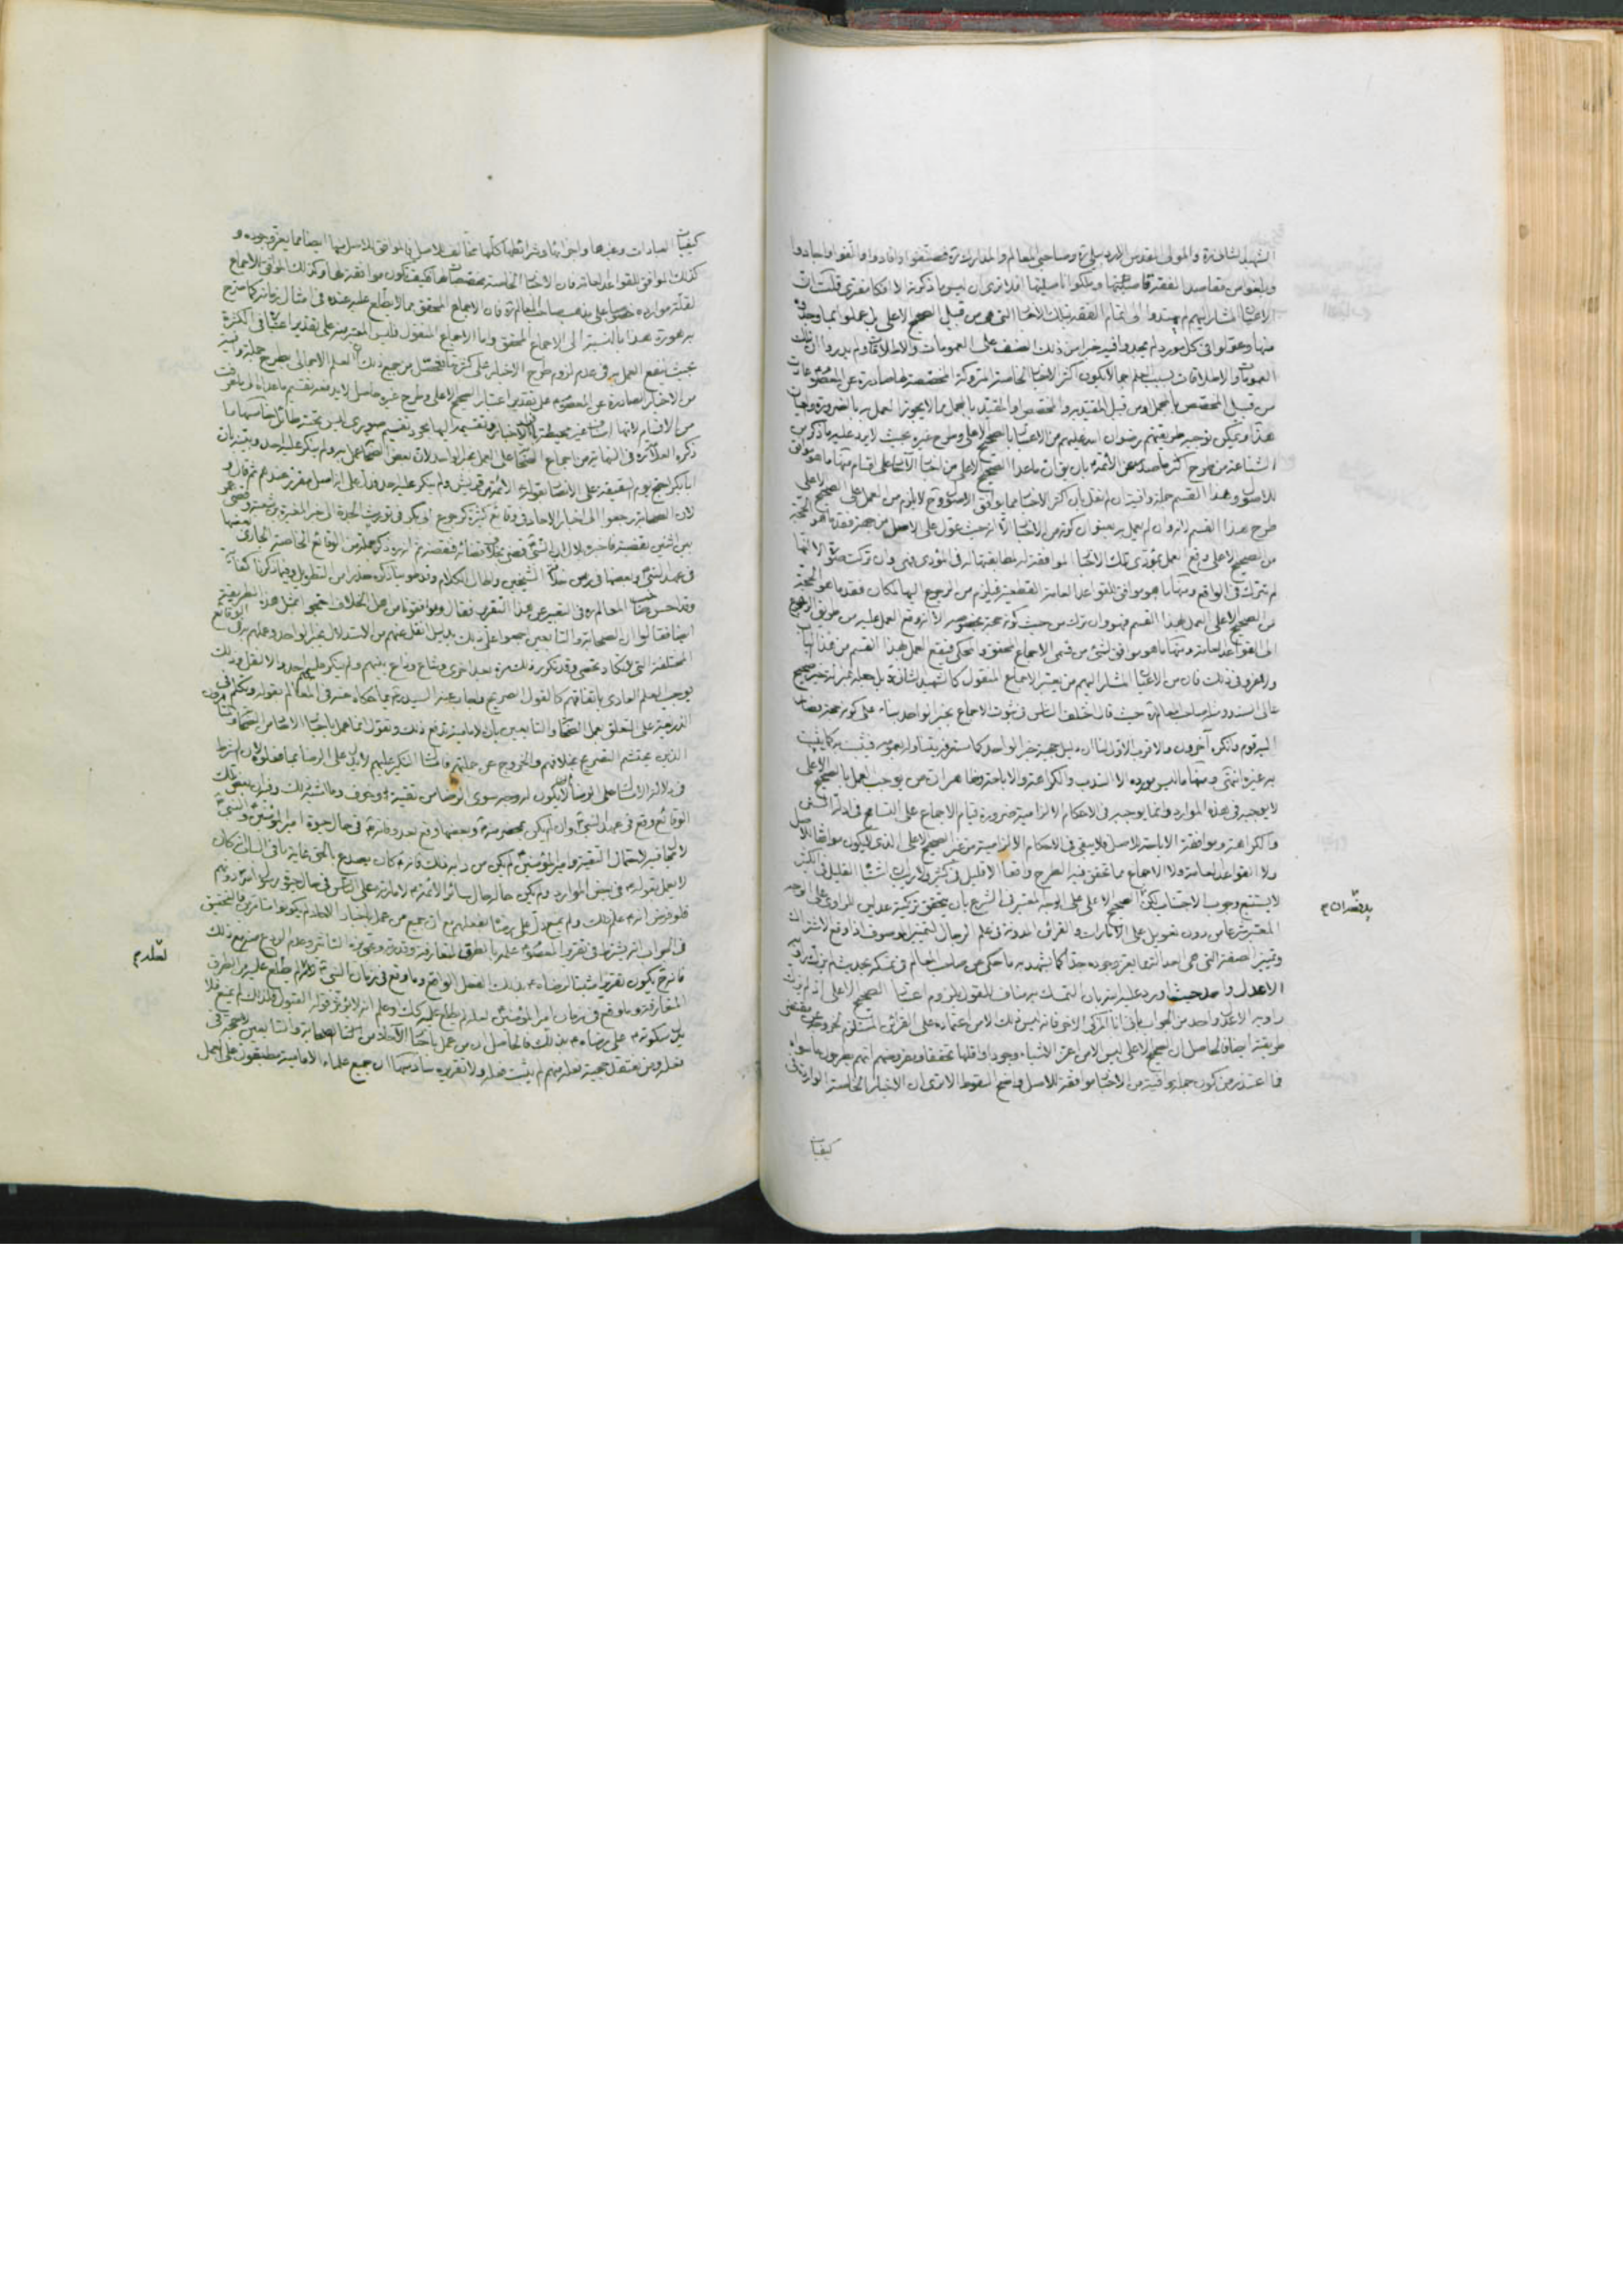 الشهيد الثانى ره والمولى المقدس الاردبيلى ره وصاحبى المعالم والمدارك ره فصنفوا وافادوا واتقنوا واجادوا
وبلغوا من مقاصد الفقه
الاعيان المشار اليهم لم يهتدوا الى تمام الفقه بتلك الاخبار التى هى من قبيل الصحيح الاعلى بل عملوا بما وجدوه
منها وعولوا فى كل مورد لم يجدوا فيه خبرا من ذلك الصنف على العمومات والاطلاقات ولم يدروا ان تلك
العمومات والاطلاقات بسبب العلم اجمالا بكون اكثر الاخبار الخاصة المتروكة المخصصة لها صادرة عن المعصوم
من قبيل المخصص بالمجمل ومن قبيل المقيد بالمجمل مما لا يجوز العمل به بالضرورة والعيان
هذا ويمكن توجيه طريقتهم رضوان الله عليهم من الاعتبار بالصحيح الاعلى وطرح غيره بحيث لا يرد عليه ما ذكر من
الشناعة من طرح اكثر ما صدر عن الائمة ع بان يق ان ما عدا الصحيح الاعلى من اخبار الآحاد على اقسام منها ما هو موافق
للاصول وهذا القسم جملة وافية ان لم نقل بان اكثر الاخبار مما يوافق الاصول وح لا يلزم من العمل على الصحيح الاعلى
طرح هذا القسم لانه وان لم يعمل به بعنوان كونه من الاخبار الا انه حيث عول على الاصل من جهة فقد ما هو الحجة
من الصحيح الاعلى وقع العمل بمؤدى تلك الاخبار الموافقة له لمطابقتها له فى المؤدى فهى وان تركت صورة الا انها
لم تترك فى الواقع ومنها ما هو موافق للقواعد العامة القطعية فيلزم من الرجوع اليها لمكان فقد ما هو الحجة
من الصحيح الاعلى العمل بهذا القسم فهو وان ترك من حيث كونه حجة بخصوصه الا انه وقع العمل عليه من طريق الرجوع
الى القواعد العامة ومنها ما هو موافق لشئ من قسمى الاجماع المحقق والمحكى فيقع العمل بهذا القسم من هذا الباب
ولا غرو فى ذلك فان من الاعيان المشار اليهم من يعتبر الاجماع المنقول كالشهيد الثانى ره بل جعله بمنزلة خبر صحيح
عالى السند ومثله صاحب المعالم ره حيث قال اختلف الناس فى ثبوت الاجماع بخبر الواحد بناء على كونه حجة فصار
اليه قوم وانكره آخرون والاقرب الاول لنا ان دليل حجية خبر الواحد كما ستعرفه يتناوله بعمومه فيثبت به كما يثبت
به غيره انتهى ومنها ما ليس مورده الا الندب والكراهة والاباحة وظاهر ان من يوجب العمل بالصحيح الاعلى
لا يوجبه فى هذه الموارد وانما يوجبه فى الاحكام الالزامية ضرورة قيام الاجماع على التسامح فى ادلة السنن
والكراهة وموافقة الاباحة للاصل فلا يبقى فى الاحكام الالزامية من غير الصحيح الاعلى الذى لا يكون موافقا للاصل
ولا القواعد العامة ولا الاجماع مما تحقق فيه الطرح واقعا الا قليل فى كثير ولا ريب ان اشتباه القليل فى الكثير
لا يستتبع وجوب الاجتناب لكن الصحيح الاعلى على الوجه المعتبر فى الشرع بان يتحقق تزكية عدلين للراوى على الوجه
المعتبر شرعا من دون تعويل على الامارات والقرائن المدونة فى علم الرجال لتمييز الموصوف اذا وقع الاشتراك
وتمييز الصفة التى هى احد الذى يعز وجوده جدا كما يشهد به ما حكى عن صاحب المعالم فى
الاعدل واحد حيث اورد عليه بان التمسك به مناف للقول بلزوم اعتبار الصحيح الاعلى اذ لم يزك
راويه الاعدل واحد من الجواب بانى انا المزكى الآخر فانه ليس ذلك الا من اعتماده على القرائن المستلزم لخروجه عن مقتضى
طريقته ايضا والحاصل ان الصحيح الاعلى ليس الا من اعز الاشياء وجودا واقلها تحققا ومفروضهم انهم يطرحون ما سواه
فما اعتذر من كون جملة وافية من الاخبار موافقة للاصل واضح السقوط الا ترى ان الاخبار الخاصة الواردة فى
كيفيات
كيفيات العبادات وغيرها واجزائها وشرائطها كلها مخالف للاصل فالموافق للاصل منها ايضا مما يعز وجوده و
كذلك الموافق للقواعد العامة فان الاخبار الخاصة مخصصات لها فكيف تكون موافقة لها وكذلك الموافق للاجماع
لقلة موارده خصوصا على مذهب صاحب المعالم ره فان الاجماع المحقق مما لا يطلع عليه عنده فى امثال زماننا كما صرح
به عورة هذا بالنسبة الى الاجماع المحقق واما الاجماع المنقول فليس المعتبر منه على تقدير اعتباره فى الكثرة
بحيث ينفع العمل به فى عدم لزوم طرح الاخبار على كثرتها فتحصل من جميع ذلك ان العلم الاجمالى بطرح جملة وافية
من الاخبار الصادرة عن المعصوم على تقدير اعتبار الصحيح الاعلى وطرح غيره حاصل لا يدفعه تقسيم ما عداه الى ما عرفت
من الاقسام لانها اقسام غير محيطة بالاخبار وتقسيمها اليها مجرد تقسيم صورى ليس تحته طائل خامسها ما
ذكره العلامة ره فى النهاية من اجماع الصحابة على العمل بخبر الواحد لان بعض الصحابة عمل به ولم ينكر عليه احد وبيته بان
ابا بكر احتج يوم السقيفة على الانصار بقوله ع الائمة من قريش ولم ينكر عليه احد
لان الصحابة رجعوا الى اخبار الآحاد فى وقائع كثيرة كرجوع ابى بكر فى توريث الجدة الى خبر المغيرة بن شعبة وقضى هو
بين اثنين بقضية فاخبره بلال ان النبى ص قضى بخلاف قضائه فنقضه ثم انه ره ذكر جملة من الوقائع الخاصة الجارى بعضها
فى عهد النبى ص وبعضها فى زمن خلافة الشيخين واطال الكلام وقد طوينا ذكره حذرا من التطويل وفيما ذكرنا كفاية
وقد احسن صاحب المعالم ره فى التعبير عن هذا التقرير فقال وموافقونا من اهل الخلاف احتجوا بمثل هذه الطريقة
ايضا فقالوا ان الصحابة والتابعين اجمعوا على ذلك بدليل ما نقل عنهم من الاستدلال بخبر الواحد وعملهم به فى الوقائع
المختلفة التى لا تكاد تحصى وقد تكرر ذلك مرة بعد اخرى وشاع وذاع بينهم ولم ينكر عليهم احد والا لنقل وذلك
يوجب العلم العادى باتفاقهم كالقول الصريح واجاب عنه السيد ره بما حكاه عنه فى المعالم بقوله
الذريعة على التعلق بعمل الصحابة والتابعين بان الامامية تدفع ذلك وتقول انما عمل باخبار الآحاد من الصحابة
الذين يحتشم التصريح بخلافهم والخروج عن جملتهم فامساك النكير عليهم لا يدل على الرضا بما فعلوه لان الشرط
فى دلالة الامساك على الرضا ان لا يكون له وجه سوى الرضا من تقية وخوف وما اشبه ذلك
الوقائع وقع فى عهد النبى ص وان لم يكن بمحضر منه ص وبعضها وقع بعد وفاته ص فى حال حيوة امير المؤمنين ع والنبى ص
لا مجال فيه لاحتمال التقية وامير المؤمنين ع لم يكن من دأبه ذلك فانه ع كان يصدع بالحق غاية ما فى الباب انه كان
لا يعمل بقوله ع فى بعض الموارد ولم يكن حاله حال سائر الائمة ع
فلو فرض انه ع علم ذلك ولم يمنع دل على رضاه بفعلهم مع ان جميع من عمل باخبار الآحاد لم يكونوا
فى الجواب انه يشترط فى تقرير المعصوم ع علمه بالطرق المتعارفة وقدرته وتجويزه التاثير وعدم الردع منه مع ذلك
فانه ح يكون تقريره مثبتا لرضاه ع بذلك الفعل الواقع وما وقع فى زمان النبى ص لم يطلع عليه من الطرق
المتعارفة وما وقع فى زمان امير المؤمنين ع لعله لم يطلع عليه كذلك وعلم انه لا يؤثر قوله القبول فلذلك لم يمنع فلا
يدل سكوته ع على رضاه ع بذلك فالحاصل ان من عمل باخبار الآحاد من الصحابة والتابعين لا حجية فى
فعله ومن نعتقد حجية فعله منهم لم يثبت فعله ولا تقريره سادسها ان جميع علماء الامامية مطبقون على العمل